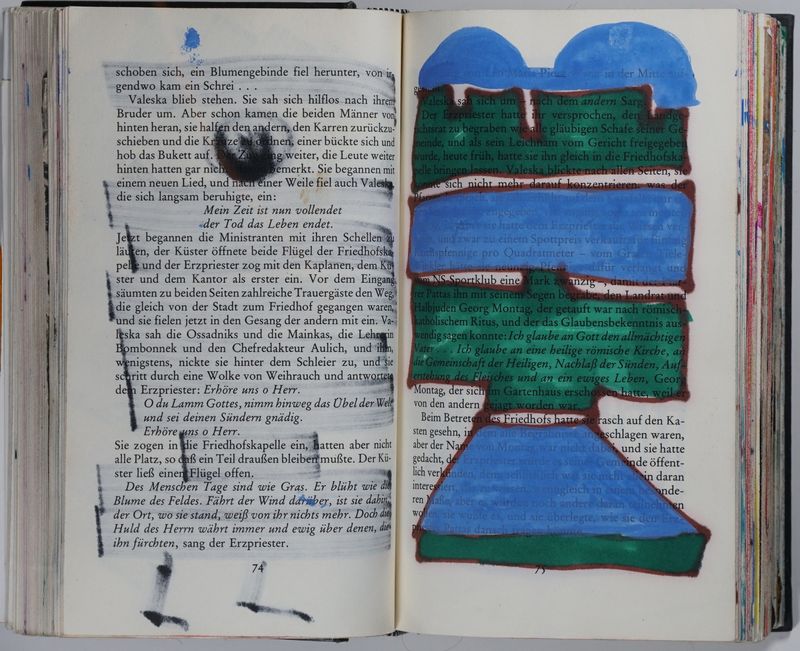 schoben sich, ein Blumengebinde fiel herunter, von ir-
gendwo kam ein Schrei . . .
Valeska blieb stehen. Sie sah sich hilflos nach ihrem
Bruder um. Aber schon kamen die beiden Männer von
hinten heran, sie halfen den andern, den Karren zurückzu-
schieben und die Kränze zu ordnen, einer bückte sich und
hob das Bukett auf. Der Zug ging weiter, die Leute weiter
hinten hatten gar nichts bemerkt. Sie begannen mit
einem neuen Lied, und nach einer Weile fiel auch Valeska,
die sich langsam beruhigte, ein:
Mein Zeit ist nun vollendet
der Tod das Leben endet.
Jetzt begannen die Ministranten mit ihren Schellen zu
läuten, der Küster öffnete beide Flügel der Friedhofska-
pelle und der Erzpriester zog mit den Kaplanen, dem Kü-
ster und dem Kantor als erster ein. Vor dem Eingang
säumten zu beiden Seiten zahlreiche Trauergäste den Weg,
die gleich von der Stadt zum Friedhof gegangen waren,
und sie fielen jetzt in den Gesang der andern mit ein. Va-
leska sah die Ossadniks und die Mainkas, die Lehrerin
Bombonnek und den Chefredakteur Aulich, und ihm,
wenigstens, nickte sie hinter dem Schleier zu, und sie
schritt durch eine Wolke von Weihrauch und antwortete
dem Erzpriester: Erhöre uns o Herr.
O du Lamm Gottes, nimm hinweg das Übel der Welt
und sei deinen Sündern gnädig.
Erhöre uns o Herr.
Sie zogen in die Friedhofskapelle ein, hatten aber nicht
alle Platz, so daß ein Teil draußen bleiben mußte. Der Kü-
ster ließ einen Flügel offen.
Des Menschen Tage sind wie Gras. Er blüht wie die
Blume des Feldes. Fährt der Wind darüber, ist sie dahin,
der Ort, wo sie stand, weiß von ihr nichts mehr. Doch die
Huld des Herrn währt immer und ewig über denen, die
ihn fürchten, sang der Erzpriester.
74
in der Mitte
Valeska sah sich um – nach dem andern Sarg.
Der Erzpriester hatte ihr versprochen, den Landge-
richtsrat zu begraben wie alle gläubigen Schafe seiner Ge-
meinde, und als sein Leichnam vom Gericht freigegeben
wurde, heute früh, hatte sie ihn gleich in die Friedhofska-
pelle bringen lassen. Valeska blickte nach allen Seiten, sie
konnte sich nicht mehr darauf konzentrieren, was der
und zwar zu einem Spottpreis verkauft
pfennige pro Quadratmeter – vom
neunzig
dem NS Sportklub eine Mark zwanzig
ter Pattas ihn mit seinem Segen begrabe, den Landrat und
Halbjuden Georg Montag, der getauft war nach römisch
katholischem Ritus, und der das Glaubensbekenntnis aus-
wendig sagen konnte: Ich glaube an Gott den allmächtigen
Vater . . . Ich glaube an eine heilige römische Kirche, an
die Gemeinschaft der Heiligen, Nachlaß der Sünden, Auf-
erstehung des Fleisches und an ein ewiges Leben, Georg
Montag, der sich im Gartenhaus erschossen hatte, weil er
von den andern gejagt worden war.
Beim Betreten des Friedhofs hatte sie rasch auf den Ka-
sten gesehn, in dem alle Begräbnisse angeschlagen waren,
aber der Name von Montag war nicht dabei, und sie hatte
gedacht, der Erzpriester würde es seiner Gemeinde öffent-
lich verkünden,
daran
wollen, sie wußte es, und sie überlegte, wie sie den Erz-
priester Pattas danach
75